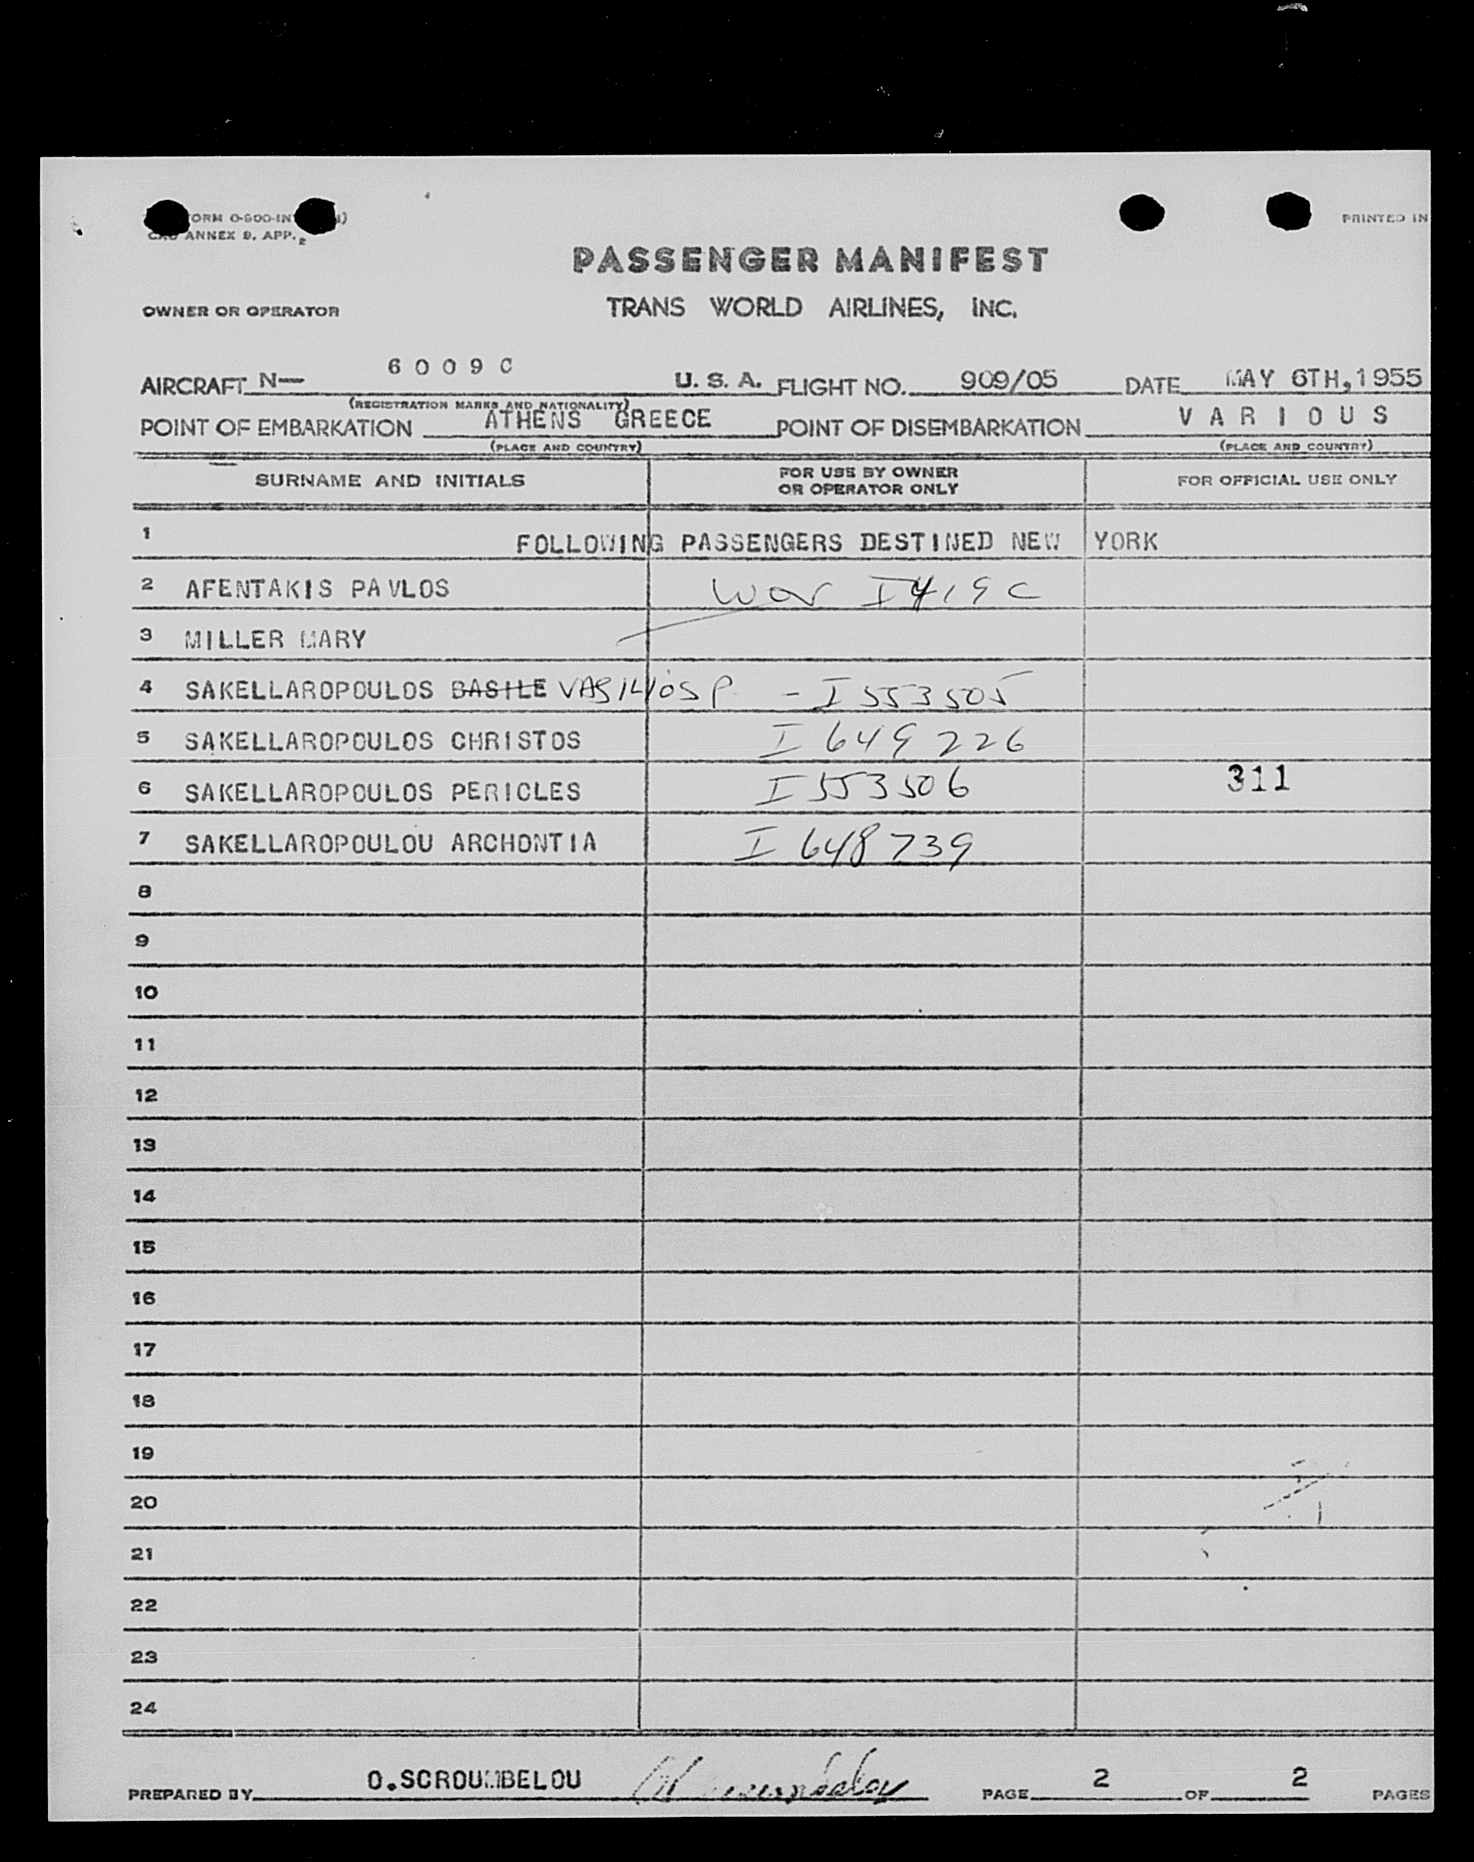 ANNEX 9, APP. 2
PRINTED IN
PASSENGER MANIFEST
OWNER OR OPERATOR TRANS WORLD AIRLINES, INC.
AIRCRAFT N— 6009C U. S. A. FLIGHT NO. 909/05 DATE MAY 6TH,1955
(REGISTRATION MARKS AND NATIONALITY)
POINT OF EMBARKATION ATHENS GREECE POINT OF DISEMBARKATION VARIOUS
(PLACE AND COUNTRY) (PLACE AND COUNTRY)
SURNAME AND INITIALS FOR USE BY OWNER OR OPERATOR ONLY FOR OFFICIAL USE ONLY
1 FOLLOWING PASSENGERS DESTINED NEW YORK
2 AFENTAKIS PAVLOS I419C
3 MILLER MARY
4 SAKELLAROPOULOS BASILE VASILIOS P. - I553505
5 SAKELLAROPOULOS CHRISTOS I 649226
6 SAKELLAROPOULOS PERICLES I553506 311
7 SAKELLAROPOULOU ARCHONTIA I 648739
8
9
10
11
12
13
14
15
16
17
18
19
20
21
22
23
24
PREPARED BY O.SCROUMBELOU PAGE 2 OF 2 PAGES